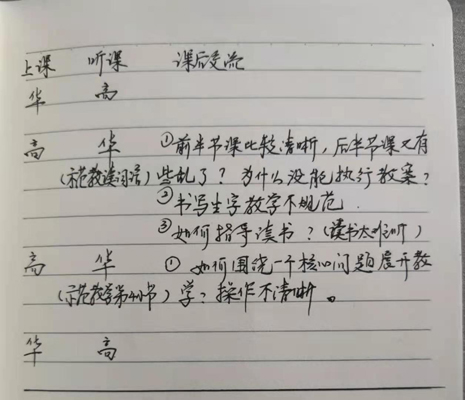 上课 听课 课后交流
华 高
高 华 ①前半节课比较清晰，后半节课又有
(示范教读词语) 些乱了？为什么没能执行教案？
②书写生字教学不规范
③如何指导读书？(读书太
高 华 ① 如何围绕一个核心问题展开教
(示范教学第4小节) 学？操作不清晰。
华 高